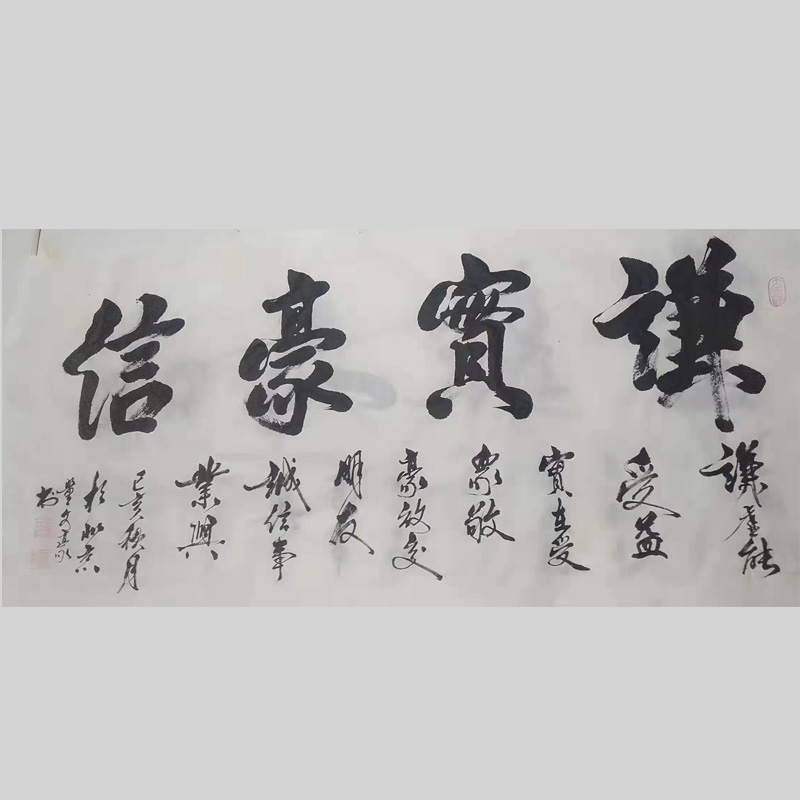 謙實豪信
謙虛能
受益
實在受
眾敬
豪放交
朋友
誠信事
業興
己亥穐月
於北京